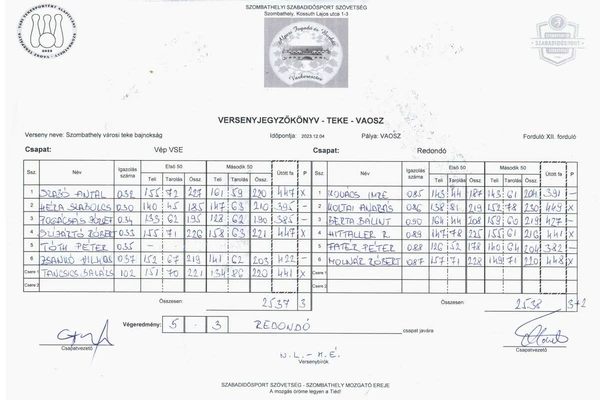 SZOMBATHELYI SZABADIDŐSPORT SZÖVETSÉG
Szombathely, Kossuth Lajos utca 1-3
VERSENYJEGYZŐKÖNYV - TEKE - VAOSZ
Verseny neve: Szombathely városi teke bajnokság Időpontja: 2023.12.04 Pálya: VAOSZ Forduló: XII. forduló
Csapat: Vép VSE Csapat: Redondó
Ssz. Név Igazolás száma Első 50 Második 50 Ütött fa P Ssz. Név Igazolás száma Első 50 Második 50 Ütött fa P
Teli Tarolás Össz. Teli Tarolás Össz. Teli Tarolás Össz. Teli Tarolás Össz.
1 SZABÓ ANTAL 032 155 72 227 161 59 220 447 X 1 KOVÁCS IMRE 085 143 44 187 143 61 204 391 –
2 HÉRA SZABOLCS 030 140 45 185 147 63 210 395 – 2 KOLTAI ANDRÁS 086 138 81 219 152 78 230 X
3 034 133 62 195 128 62 190 385 – 3 BERTA BÁLINT 090 164 44 208 159 60 219 427 –
4 033 155 71 226 158 63 221 447 X 4 HITTALLER R. 089 147 78 225 155 61 216 441 X
5 TÓTH PÉTER 035 – 5 PATER PÉTER 088 126 52 178 140 64 204 382 –
6 037 152 67 219 141 62 203 422 – 6 MOLNÁR RÓBERT 087 157 71 228 149 71 220 448 X
Csere 1 TANCSICS BALÁZS 102 151 70 221 134 86 220 441 X Csere 1
Csere 2 Csere 2
Összesen: 2537 3 Összesen: 2538 3+2
Végeredmény: 5 - 3 REDONDÓ csapat javára
Csapatvezető Csapatvezető
N.L. - H.É.
Versenybírók
SZABADIDŐSPORT SZÖVETSÉG - SZOMBATHELY MOZGATÓ EREJE
A mozgás öröme legyen a Tiéd!